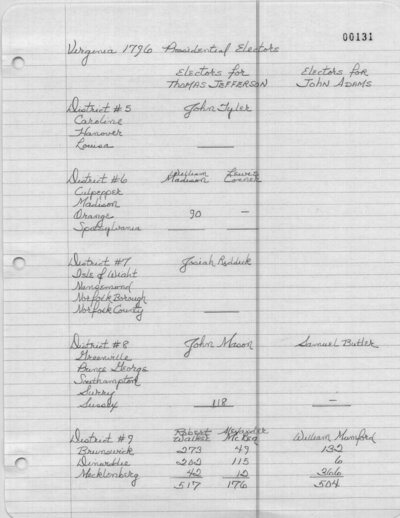 00131
Virginia 1796 Presidential Electors
Electors for THOMAS JEFFERSON
Electors for JOHN ADAMS
District #5 John Tyler
Caroline
Hanover
Louisa
District #6 William Madison
Culpepper
Madison
Orange 90 –
Spotsylvania
District #7 Josiah Riddick
Isle of Wight
Nansemond
Norfolk Borough
Norfolk County
District #8 John Mason Samuel Butler
Greenville
Prince George
Southampton
Surry
Sussex 118 –
District #9 Robert Walker Alexander McRea William Mumford
Brunswick 273 49 132
Dinwiddie 202 115 6
Mecklenburg 42 12 366
517 176 504